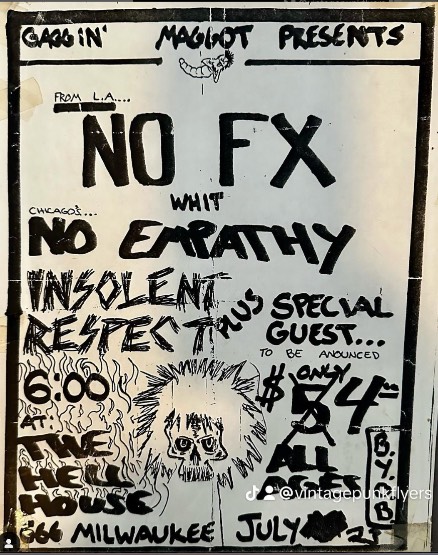 GAGGIN' MAGGOT PRESENTS
FROM L.A....
NO FX
WHIT
CHICAGO'S...
NO EMPATHY
INSOLENT
RESPECT
PLUS SPECIAL
GUEST...
TO BE ANOUNCED
6:00
$ ONLY
5 4
AT:
THE
HELL
HOUSE
ALL
AGES
B.Y.O.B
@vintagepunkflyers
666 MILWAUKEE JULY 25